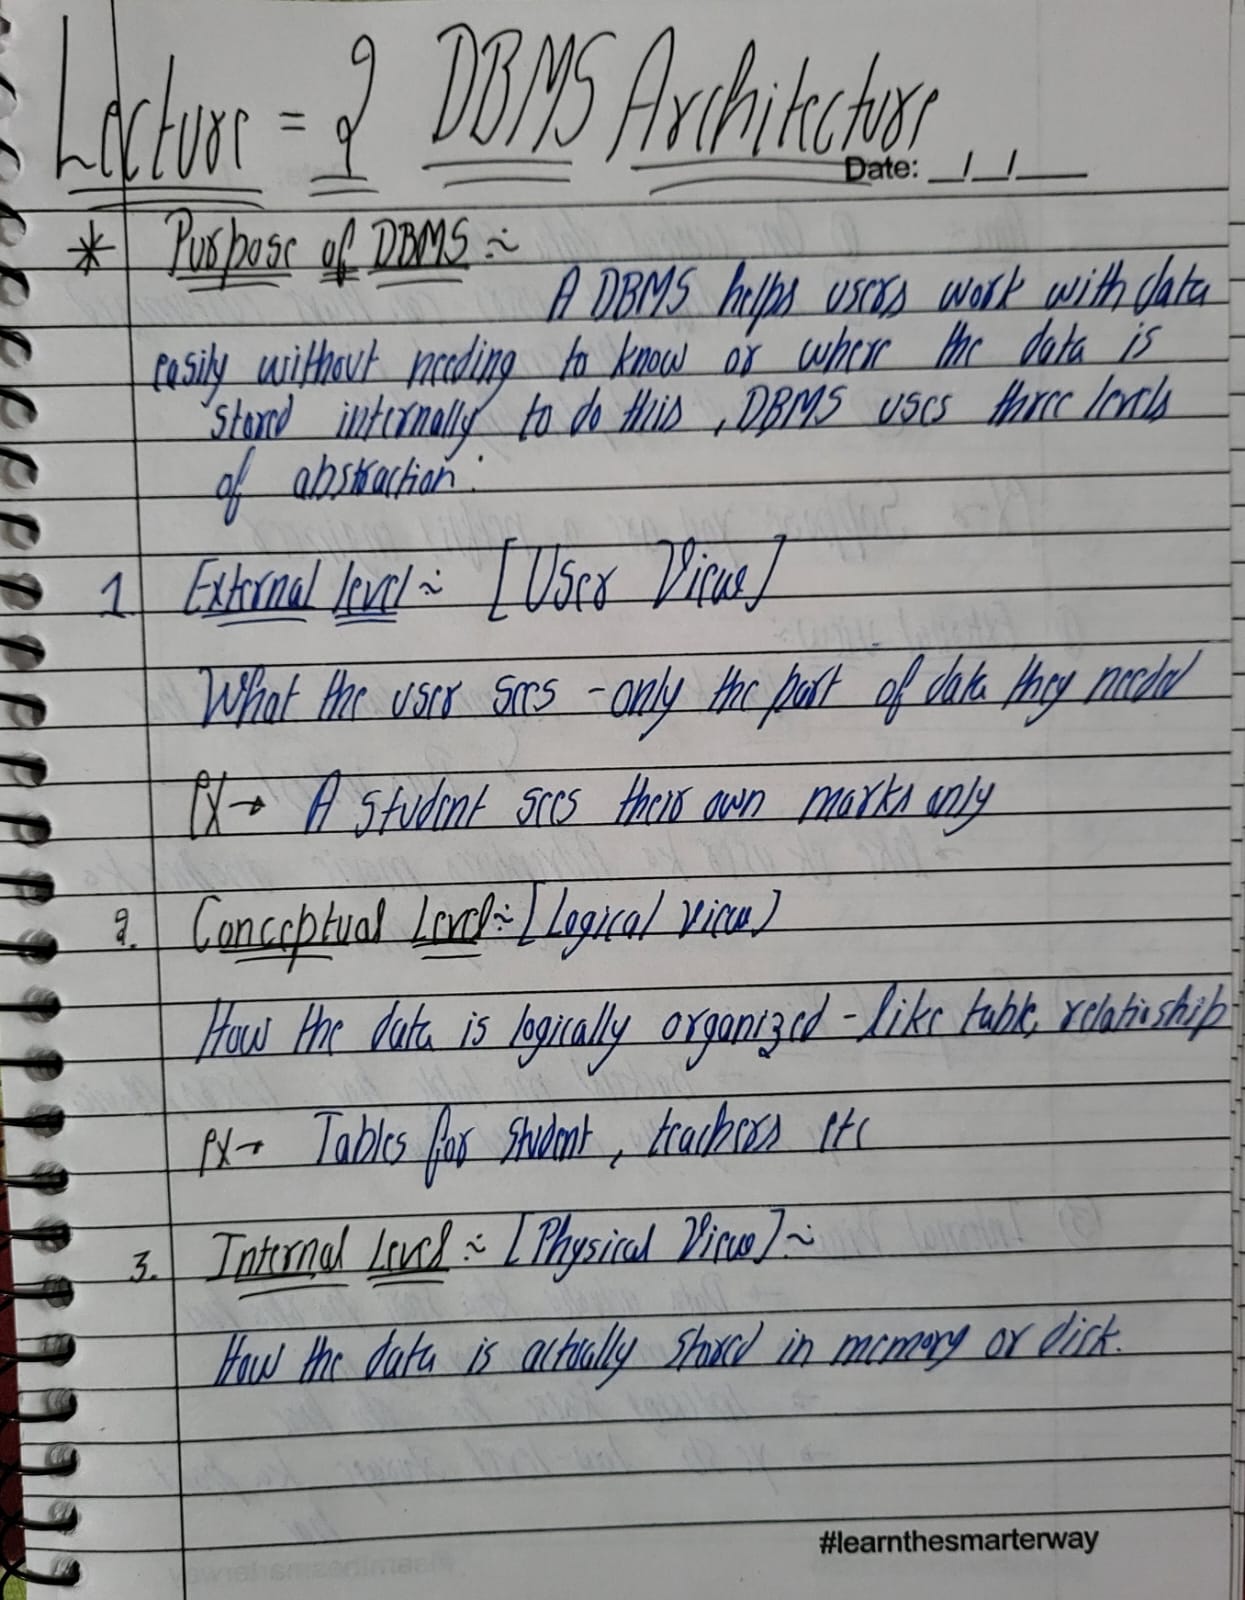 Lecture = 2 DBMS Architecture
Date: __/__/____
* Purpose of DBMS :~
A DBMS helps users work with data
easily without needing to know or where the data is
stored internally to do this , DBMS uses three levels
of abstraction.
1. External level :~ [User View]
What the user sees - only the part of data they needed
EX → A student sees their own marks only
2. Conceptual Level :~ [Logical view]
How the data is logically organized - like table, relatioship
EX → Tables for student , teachers etc
3. Internal Level :~ [Physical View] :~
How the data is actually stored in memory or disk.
#learnthesmarterway